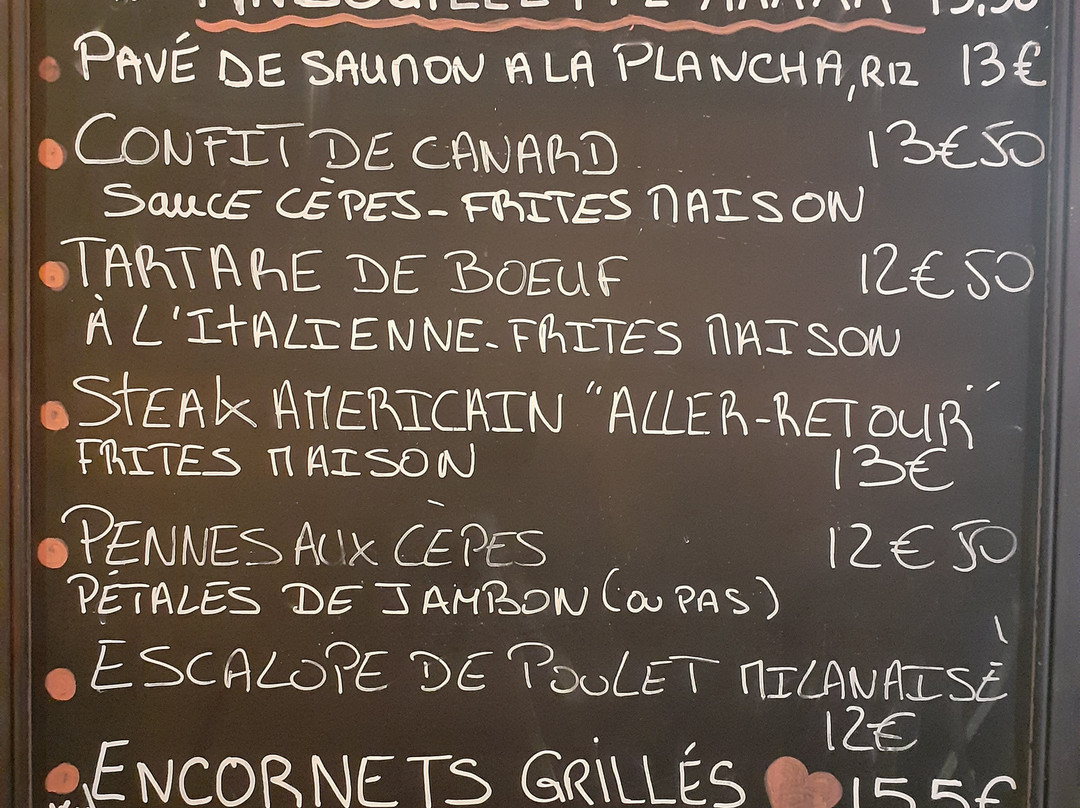 PAVÉ DE SAUMON A LA PLANCHA, RIZ 13€
CONFIT DE CANARD 13€50
SAUCE CÈPES - FRITES MAISON
TARTARE DE BOEUF 12€50
À L'ITALIENNE - FRITES MAISON
STEAK AMERICAIN "ALLER-RETOUR"
FRITES MAISON 13€
PENNES AUX CÈPES 12€50
PÉTALES DE JAMBON (OU PAS)
ESCALOPE DE POULET MILANAISE
12€
ENCORNETS GRILLÉS